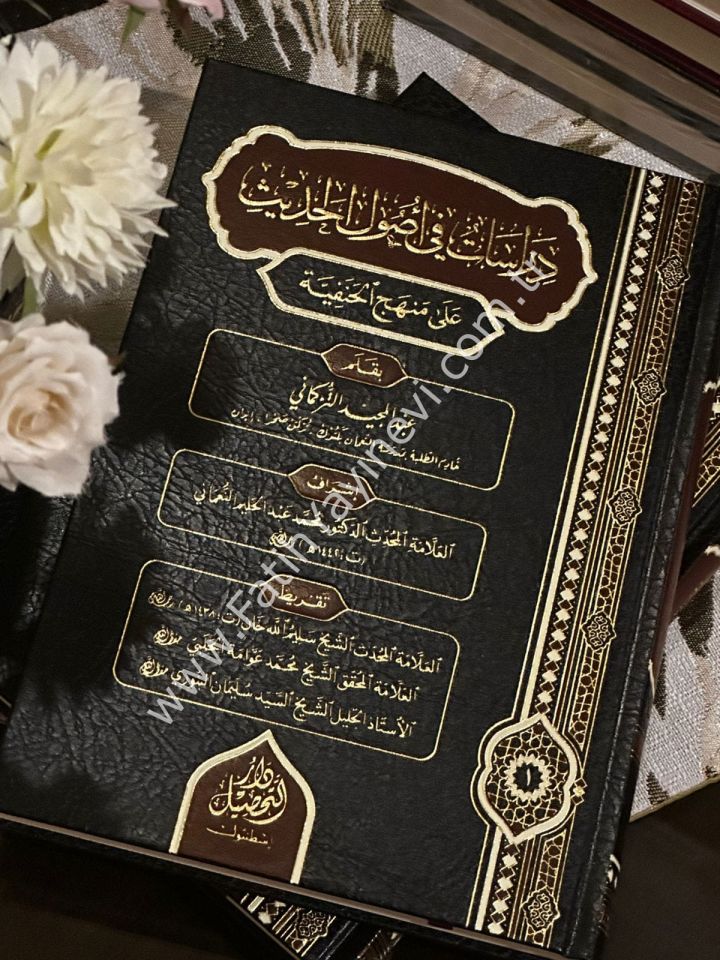 دِرَاسَاتٌ فِي أُصُولِ الْحَدِيثِ
عَلَى مَنهَجِ الْحَنَفِيَّةِ
بِقَلَم
عبد المجيد التركماني
خادم الطلبة
إشراف
العلّامة المحدّث الدكتور محمد عبد الحليم النعماني
(ت: ١٤٤٢هـ)
تقريظ
العلّامة المحدّث الشيخ سليم الله خان (ت: ١٤٣٨هـ)
العلّامة المحقّق الشيخ محمد عوّامة الحلبي
الأستاذ الجليل الشيخ السيد سلمان الندوي
دار
التحصيل
إسطنبول
١
www.Fatihyayinevi.com.tr